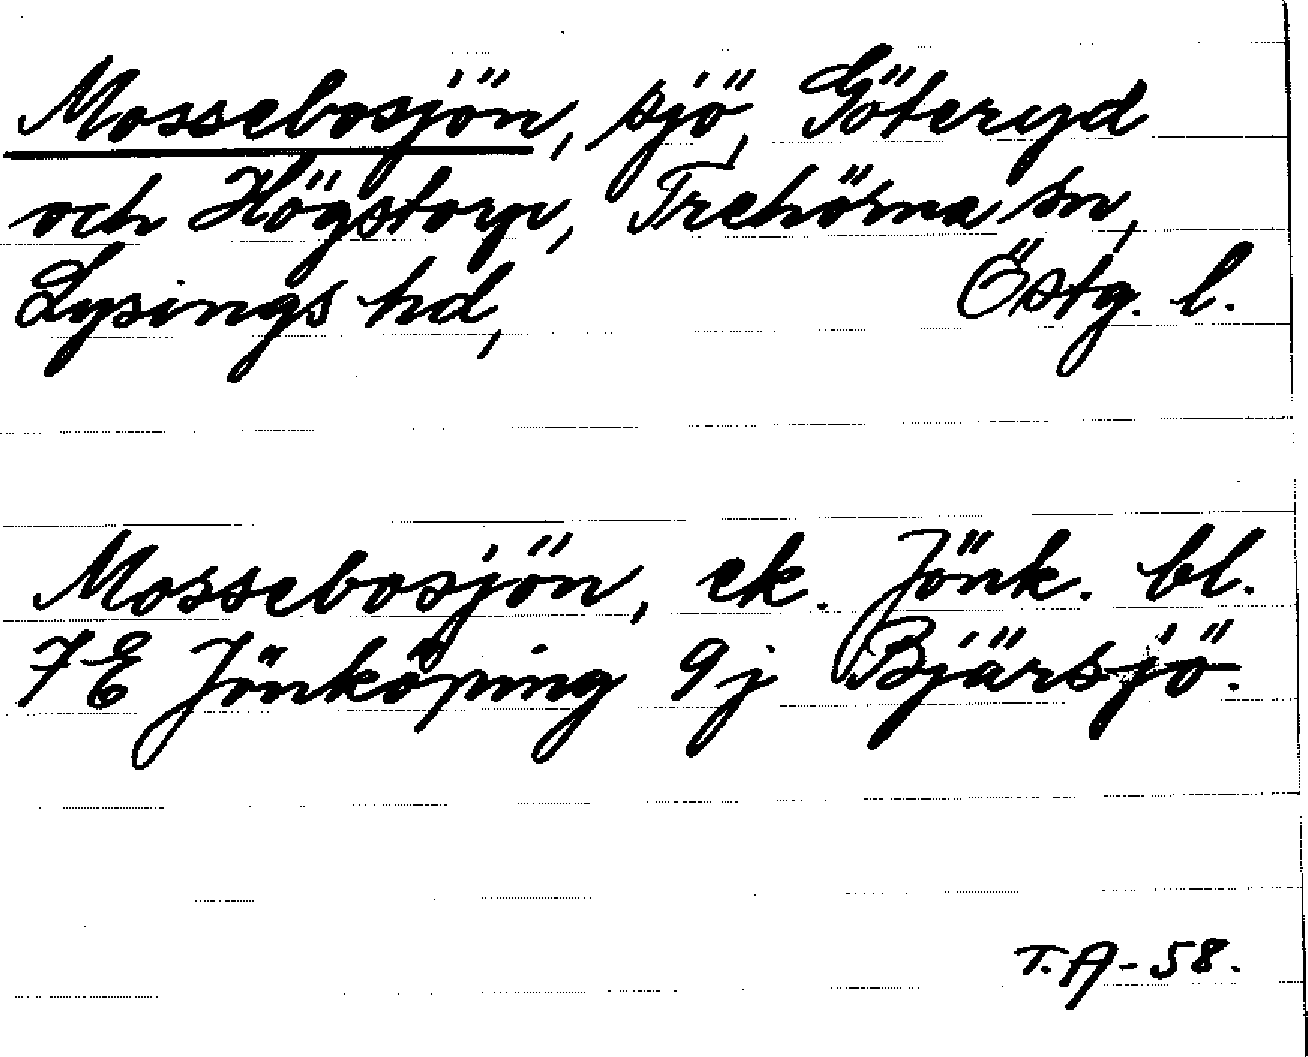 Mossebosjön, sjö, Göteryd
och Högstorp, Trehörna sn,
Lysings hd, Östg. l.
Mossebosjön, ek. Jönk. bl.
7E Jönköping 9j Bjärsjö.
T.A-58.